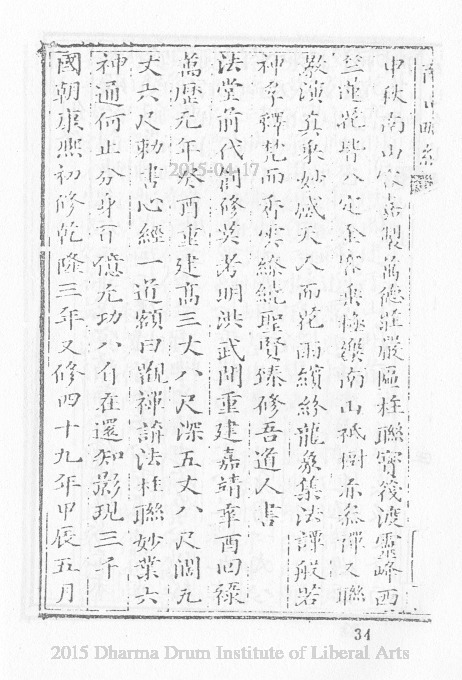 中秋南山容嘉製萬德莊嚴區柱聯寶筏渡靈峰西
竺蓮花皆入定金容乘極樂南山祇樹亦參禪又聯
敷演真乘妙感天人而花雨繽紛龍象集法譚般若
神孚釋梵而香雲繚繞聖賢臻修吾道人書
法堂前代創修莫考明洪武間重建嘉靖辛酉回祿
萬歷元年癸酉重建高三丈八尺深五丈八尺濶九
丈六尺勅書心經一道額曰觀禪諭法柱聯妙業六
神通何止分身百億充功八自在還知影現三千
國朝康熙初修乾隆三年又修四十九年甲辰五月
34
2015-04-17
2015 Dharma Drum Institute of Liberal Arts